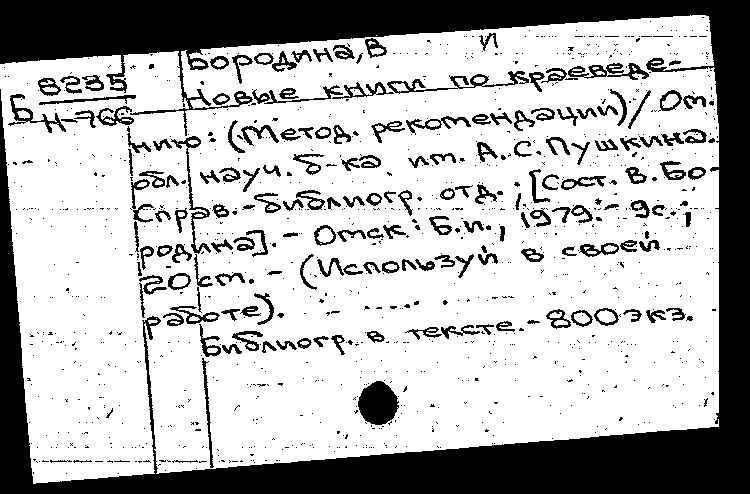 Бородина, В VI
Б 8235 Новые книги по краеведе-
Н-766
нию: (Метод. рекомендации) / Ом.
обл. науч. б-ка им. А.С.Пушкина.
Справ.-библиогр. отд.; [Сост. В. Бо-
родина]. - Омск: Б.и., 1979. - 9с.;
20 см. - (Используй в своей
работе).
Библиогр. в тексте. - 800 экз.